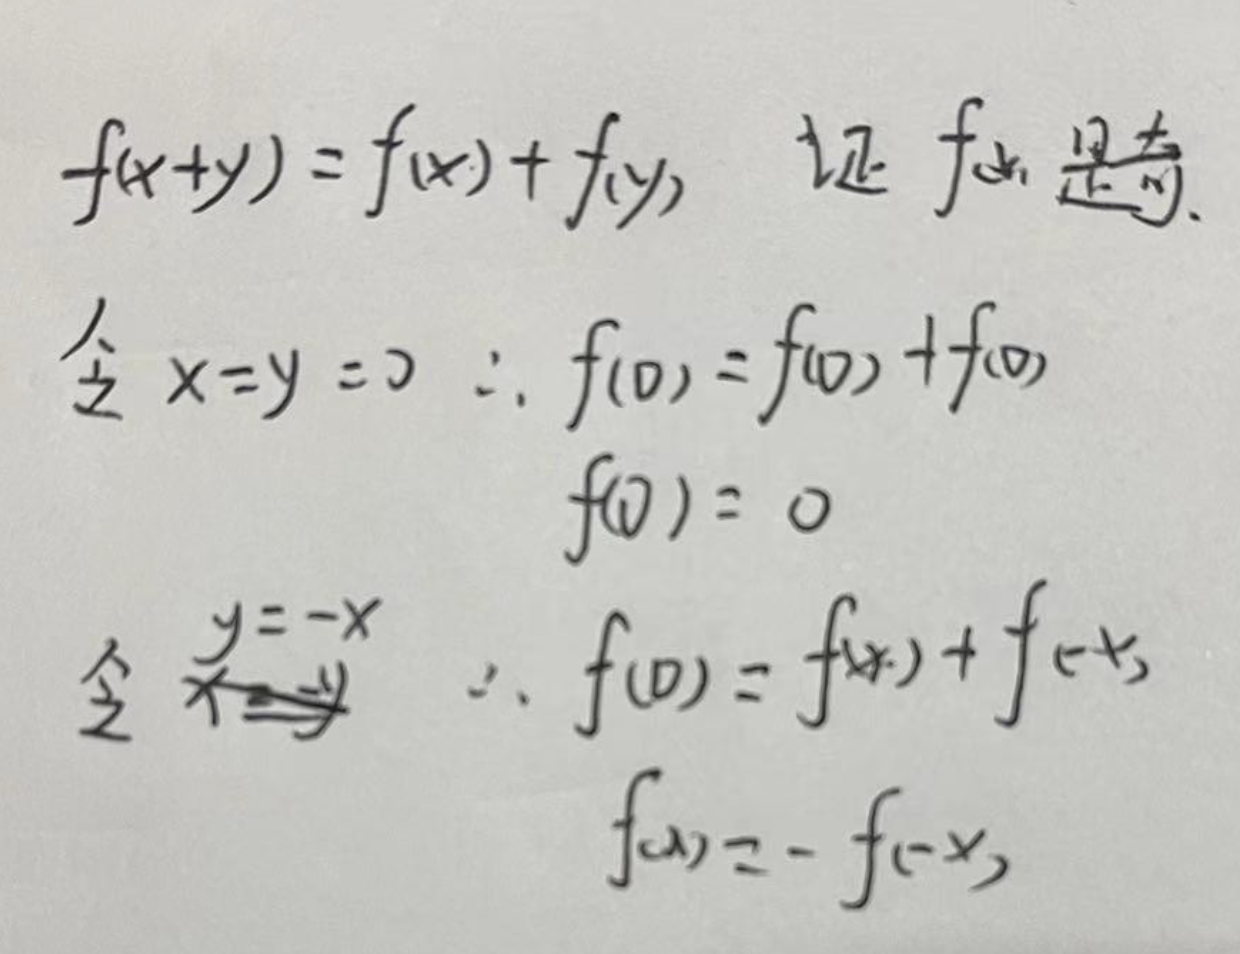 f(x+y) = f(x) + f(y) 证 f(x)
令 x=y=0 ∴ f(0) = f(0) + f(0)
f(0) = 0
令 y=-x ∴ f(0) = f(x) + f(-x)
f(x) = - f(-x)